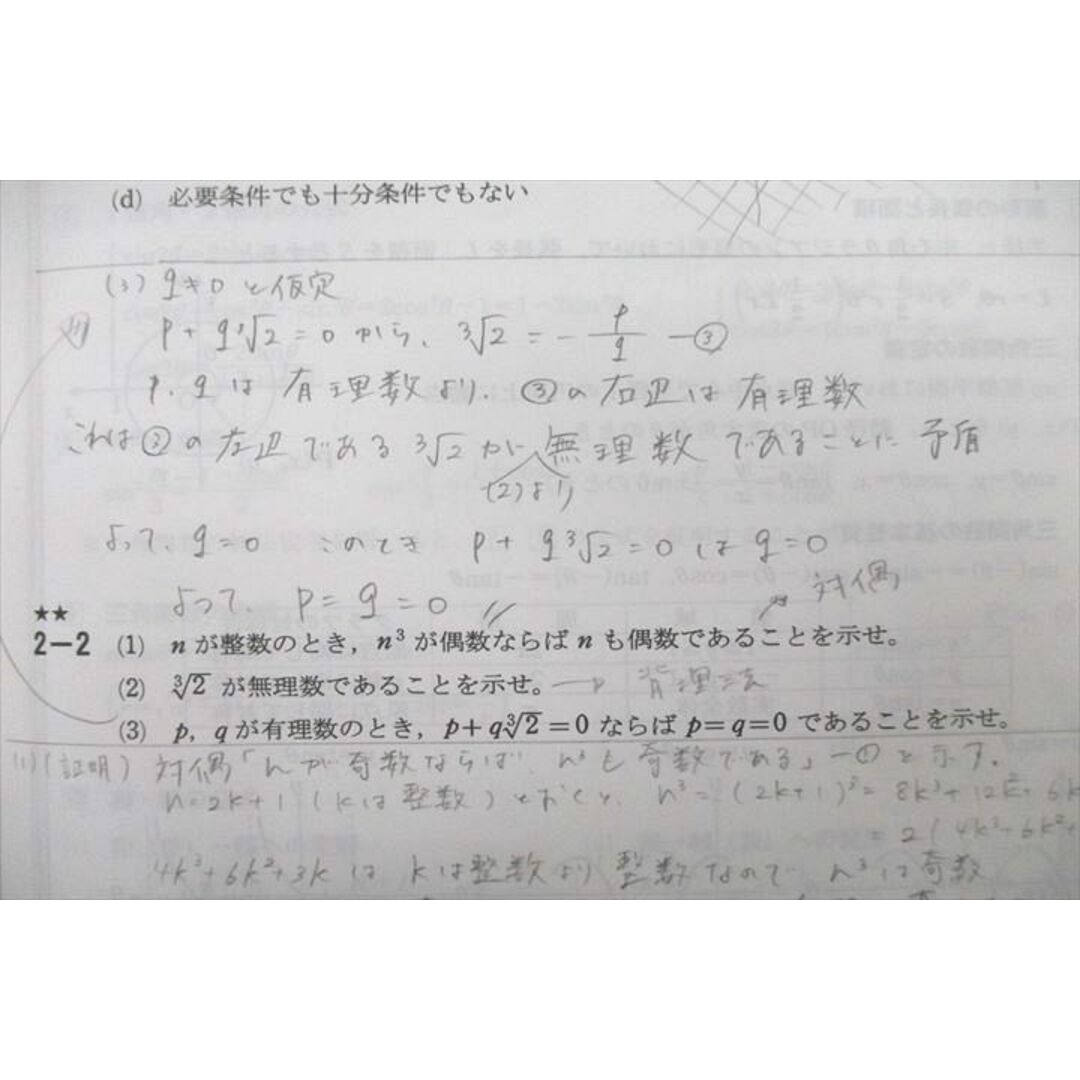 (d) 必要条件でも十分条件でもない
(3) q≠0 と仮定
p+q∛2=0 から、 ∛2 = -p/q —③
p, q は有理数より、③の右辺は有理数
これは③の左辺である ∛2 が無理数であることに矛盾
(2)より
よって、q=0 このとき p+q∛2=0 は q=0
よって、p=q=0 〃
対偶
★★
2-2 (1) n が整数のとき，n³ が偶数ならば n も偶数であることを示せ。
(2) ∛2 が無理数であることを示せ。→ 背理法
(3) p, q が有理数のとき，p+q∛2=0 ならば p=q=0 であることを示せ。
(1)(証明) 対偶「nが奇数ならば、n³も奇数である」—① を示す。
n=2k+1 (kは整数) とおくと、n³=(2k+1)³=8k³+12k²+6k
=2(4k³+6k²+
4k³+6k²+3k は kは整数より 整数なので n³は奇数